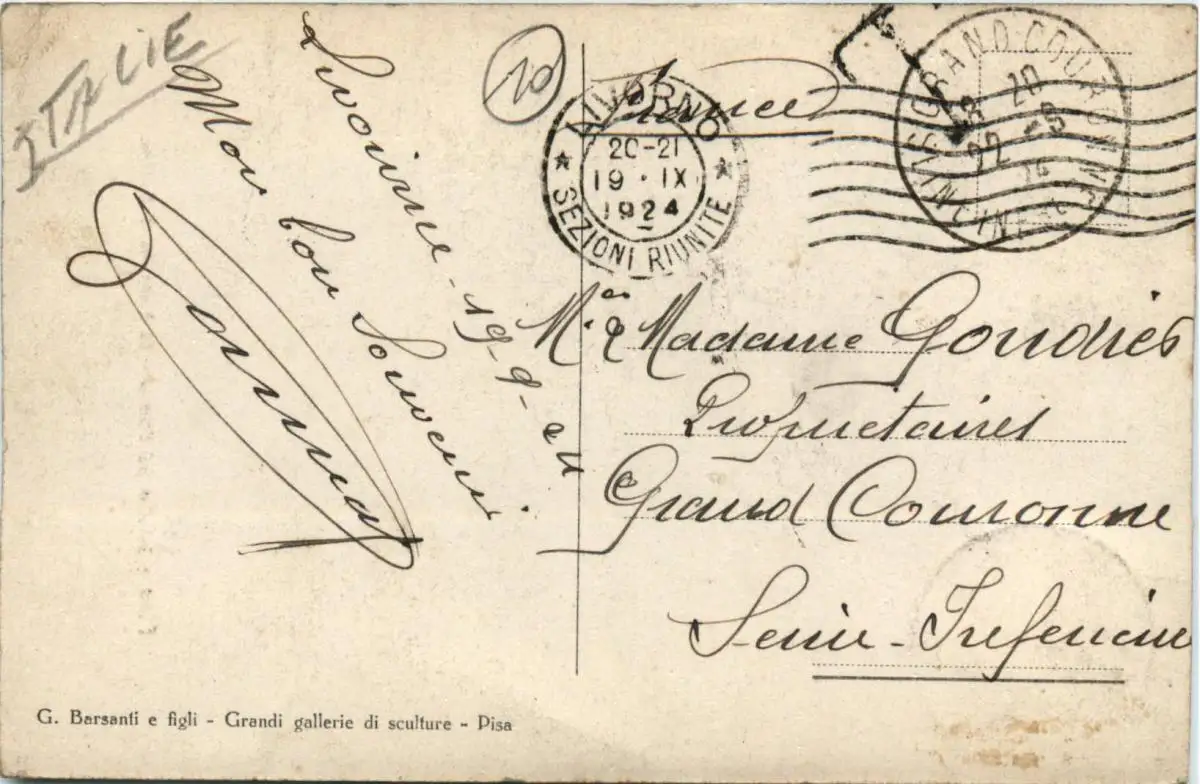 ITALIE
Livourne - 19-9-24
Mon bon Souvenir
10
France
LIVORNO
20-21
19 · IX
1924
SEZIONI RIUNITE
GRAND COURONNE
20
22 -9
SEINE INFRE
Mr & Madame Gondrés
Propriétaires
Grand Couronne
Seine-Inférieure
G. Barsanti e figli - Grandi gallerie di sculture - Pisa